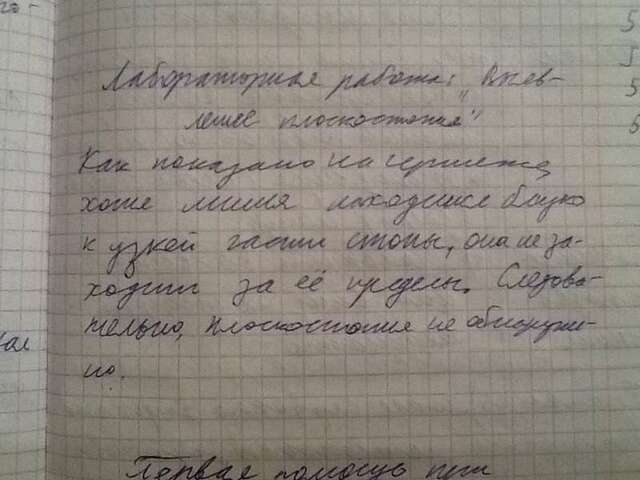 Лабораторная работа: „Выяв-
ление плоскостопия"
Как показано на чертеже,
хоже линия находится близко
к узкой части стопы, она не за-
ходит за её пределы. Следова-
тельно, плоскостопие не обнаруже-
но.
Первая помощь при
5
5
5